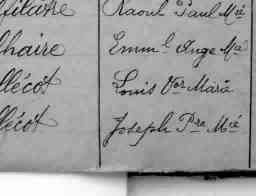 Raoul Paul Mie
lhaire Emm.l Ange Mie
llécot Louis Vor Marie
llécot Joseph Pre Mie